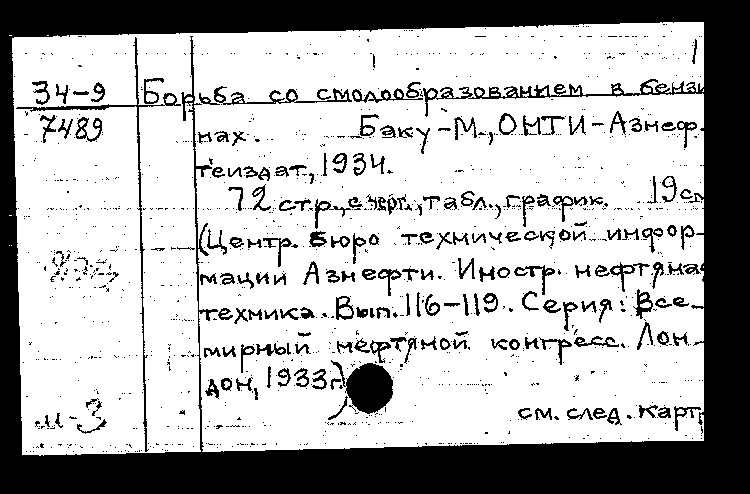 34-9 Борьба со смолообразованием в бензи
7489 нах. Баку-М., ОНТИ-Азнеф.
теиздат, 1934.
72 стр., с черт., табл., график. 19 см
(Центр. бюро технической инфор-
мации Азнефти. Иностр. нефтяная
техника. Вып. 116-119. Серия: Все-
мирный нефтяной конгресс. Лон-
дон, 1933г.)
м-3 см. след. карт.